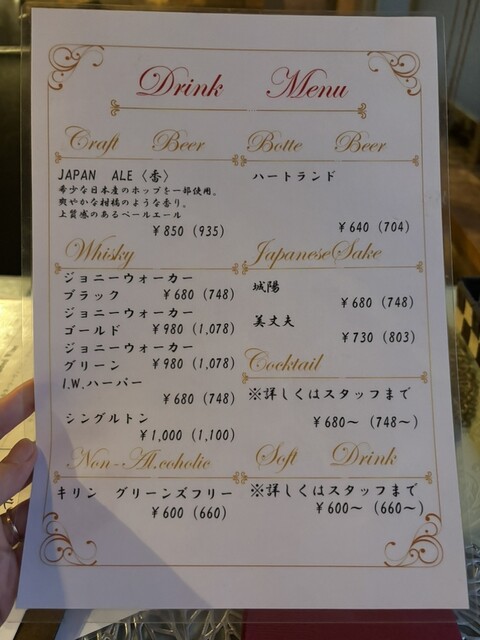 Drink Menu
Craft Beer
JAPAN ALE〈香〉
希少な日本産のホップを一部使用。
爽やかな柑橘のような香り。
上質感のあるペールエール
￥850 (935)
Botte Beer
ハートランド
￥640 (704)
Whisky
ジョニーウォーカー
ブラック ￥680 (748)
ジョニーウォーカー
ゴールド ￥980 (1,078)
ジョニーウォーカー
グリーン ￥980 (1,078)
I.W.ハーパー
￥680 (748)
シングルトン
￥1,000 (1,100)
Japanese Sake
城陽
￥680 (748)
美丈夫
￥730 (803)
Cocktail
※詳しくはスタッフまで
￥680～ (748～)
Non-Al.coholic
キリン グリーンズフリー
￥600 (660)
Soft Drink
※詳しくはスタッフまで
￥600～ (660～)